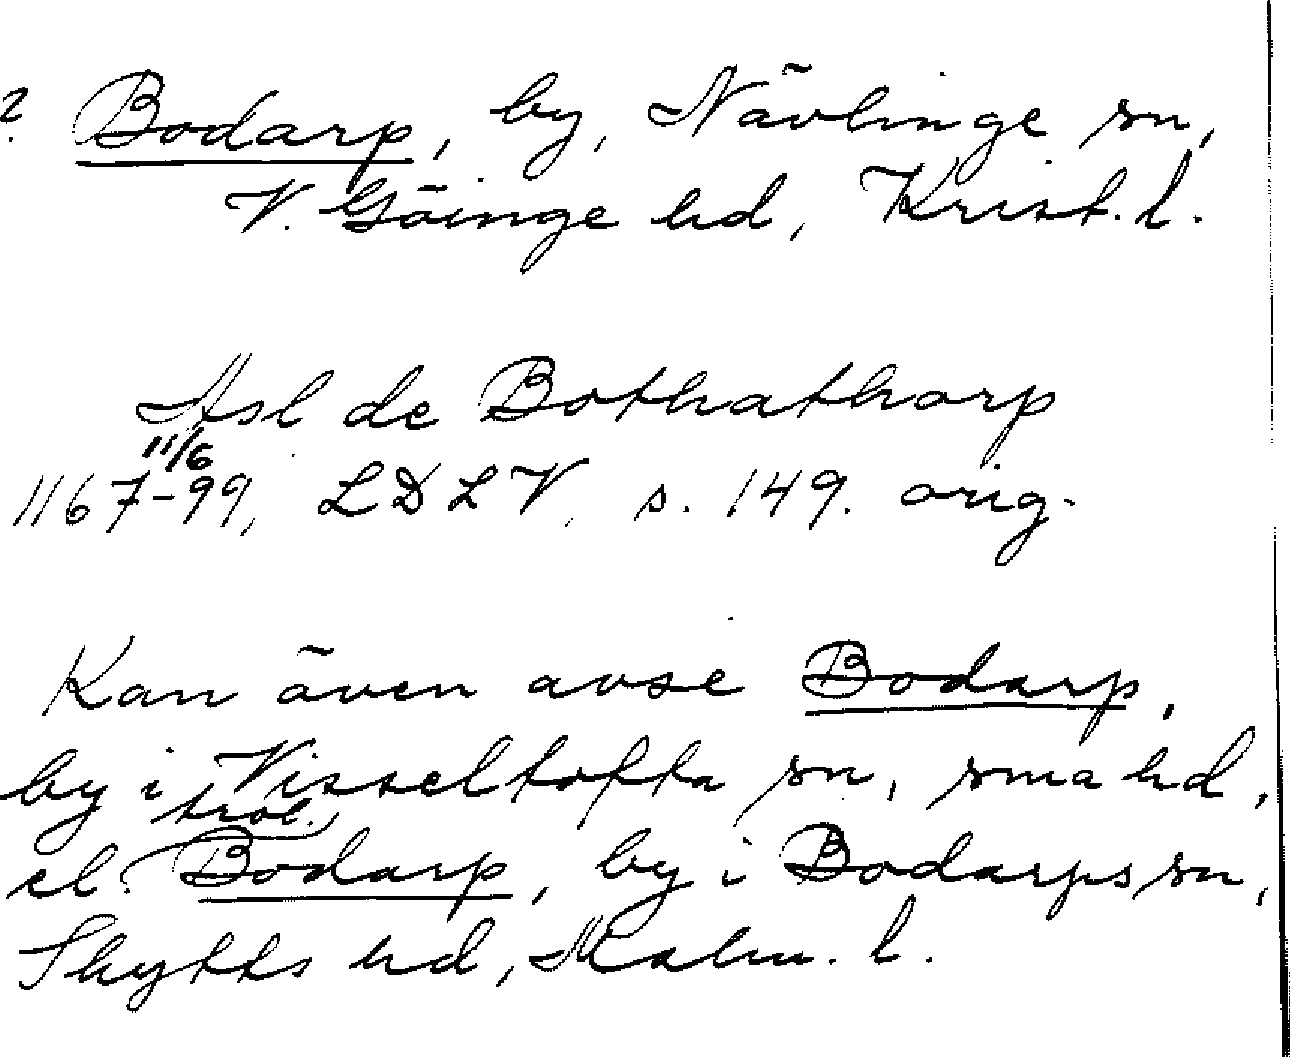 ? Bodarp, by, Nävlinge sn,
V. Göinge hd, Krist. l.
Asl de Bothathorp
11/6
1167-99, LDLV, s. 149. orig.
Kan även avse Bodarp,
by i Visseltofta sn, sma hd,
trol.
el. Bodarp, by i Bodarps sn,
Skytts hd, Malm. l.